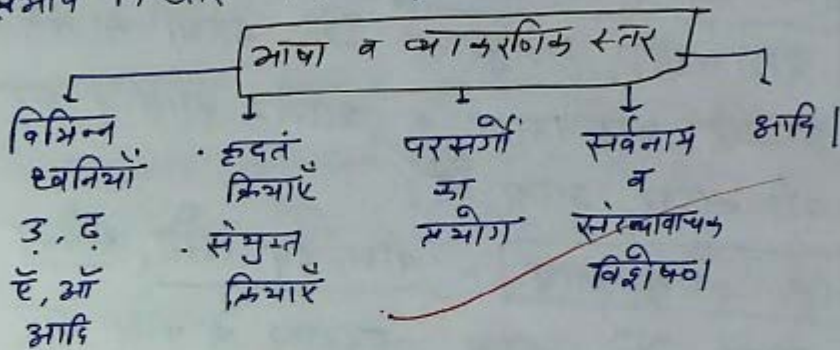 भाषा व व्याकरणिक स्तर
विभिन्न
ध्वनियाँ
ड़, ढ़
ऍ, ऑ
आदि
· कृदतं
क्रियाएँ
· संयुक्त
क्रियाएँ
परसर्गों
का
प्रयोग
सर्वनाम
व
संख्यावाचक
विशेषण
आदि।